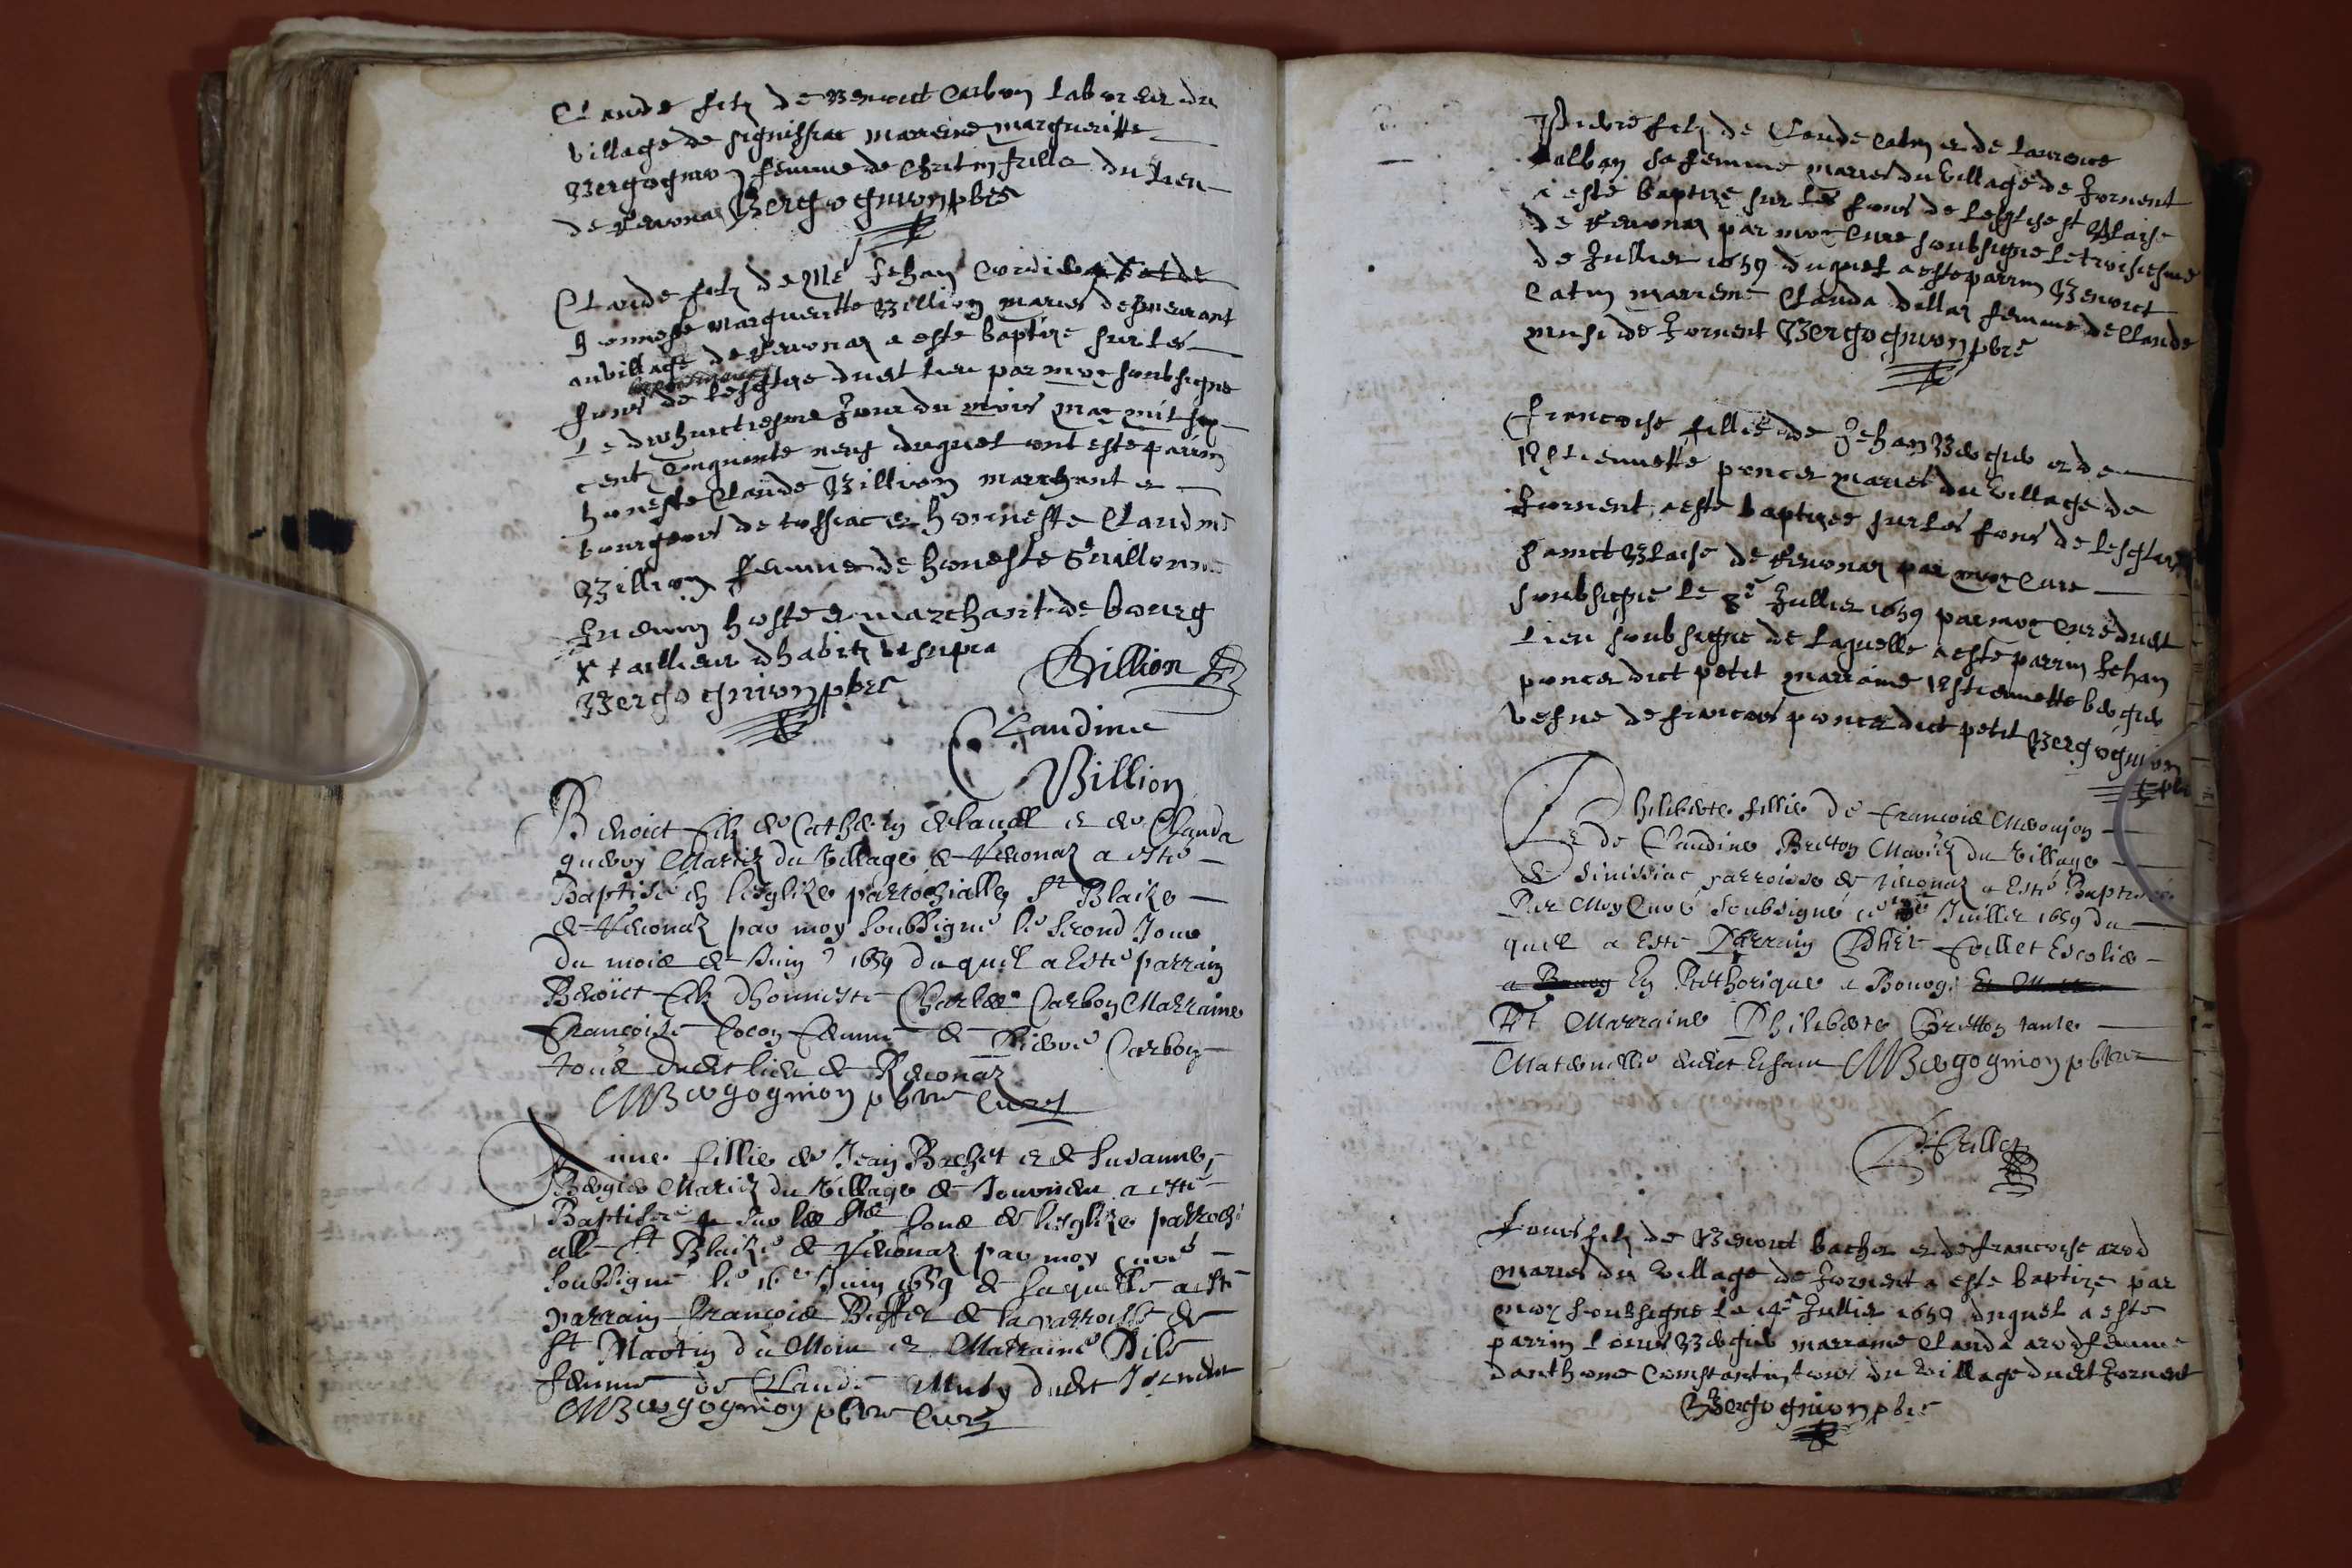 Claude filz de Benoict Carbon laboreur du
village de signissiac marrene margueritte
Bergognion femme de Chritin fulla du lieu
de Revonaz Bergognion pbre
Claude filz de Me Jehan Cordier et de
honneste Margueritte Billion maries demeurant
au village de Revonaz a este baptize sur les
fons de leschlize dudt lieu par moy soubsigne
le dixhuictiesme Jour du mois may mil six
cent cinquante neuf duquel ont este parrin
honeste Claude Billion marchant et
bourgeois de tossiac et honneste Claudine
Billion femme de honeste Guillerme
hoste et marchant de bourg
X taillieur dhabitz ut supra
Bergognion pbre Billion
Claudine
Billion
Benoict filz de Catherin et de Clauda
Mariez du Village de Revonaz a esté
Baptisé en lesglize parrochialle St Blaize
de Revonaz par moy soubsigné le second Jour
du mois de Juin 1659 duquel a esté parrain
Benoict filz dhonneste Charles Carbon Marraine
Françoise Cocon femme de Pierre Carbon
tous dudt lieu de Revonaz
MBergognion pbre Curé
fillie de Jean Bochet et de Susanne
Mariez du Village de a esté
Baptisée sur les Stz fons de lesglize parrochi
alle St Blaize de Revonaz par moy curé
soubsigné le 16e Juin 1659 de laquelle a esté
parrain François Buffet de la parroisse de
St Martin du Mont et Marraine
femme de Claude dudt
MBergognion pbre Curé
Pierre filz de Claude Catin et de Laurence
Balban sa femme maries du village de Jornent
a esté baptize sur les fons de lesglise st Blaise
de Revonaz par moy Cure soubsigne le troisiesme
de Jullier 1659 duquel a este parrin Benoict
Catin marrene Clauda dillar femme de Claude
de Jornent Bergognion pbre
Francoise fillie de Jehan Bergier et de
Estiennette poncet maries du village de
Jornent a esté baptizee sur les fons de lesglize
sainct Blaise de Revonaz par moy Cure
soubsigné le 8e Jullier 1659 par moy curé dudt
lieu soubsigne de laquelle a este parrin Jehan
poncet dict petit marraine Estiennette bergier
vefue de francois poncet dict petit Bergognion
pbre
Philiberte fillie de François
Et de Claudine Breton Mariez du Village
de Sinissiac parroisse de Revonaz a Esté Baptisée
Par Moy Curé soubsigné ce Juillet 1659 du
quel a Esté Parrain Phiet Foillet Escolier
a Bourg En Rethorique a Bourg
Et Marraine Philiberte Bretton tante
Maternelle dudict Enfant MBergognion pbre
Louis filz de Benoict bachet et de francoise arod
maries du village de Jornent a este baptize par
moy soubsigne le 14e Jullier 1659 duquel a este
parrin Louis Bergier marraine Clauda arod femme
danthone Constantin tous du village dudt Jornent
Bergognion pbre